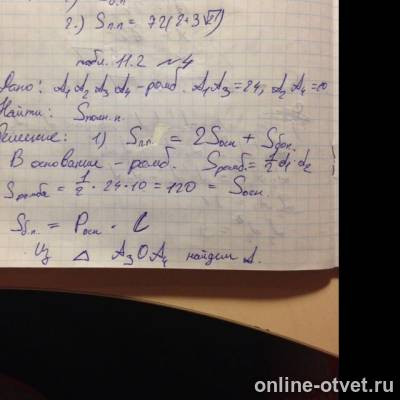 2.) Sп.п = 72(2+3√21)
табл. 11.2 №4
Дано: A₁A₂A₃A₄ - ромб. A₁A₃=24, A₂A₄=10
Найти: Sполн.п.
Решение: 1) Sп.п. = 2Sосн + Sбок.
В основание - ромб. Sромб.=1/2 d₁ d₂
Sромба = 1/2 · 24·10 = 120 = Sосн.
Sб.п. = Pосн · l
Из △ A₃OA₄ найдем
online-otvet.ru